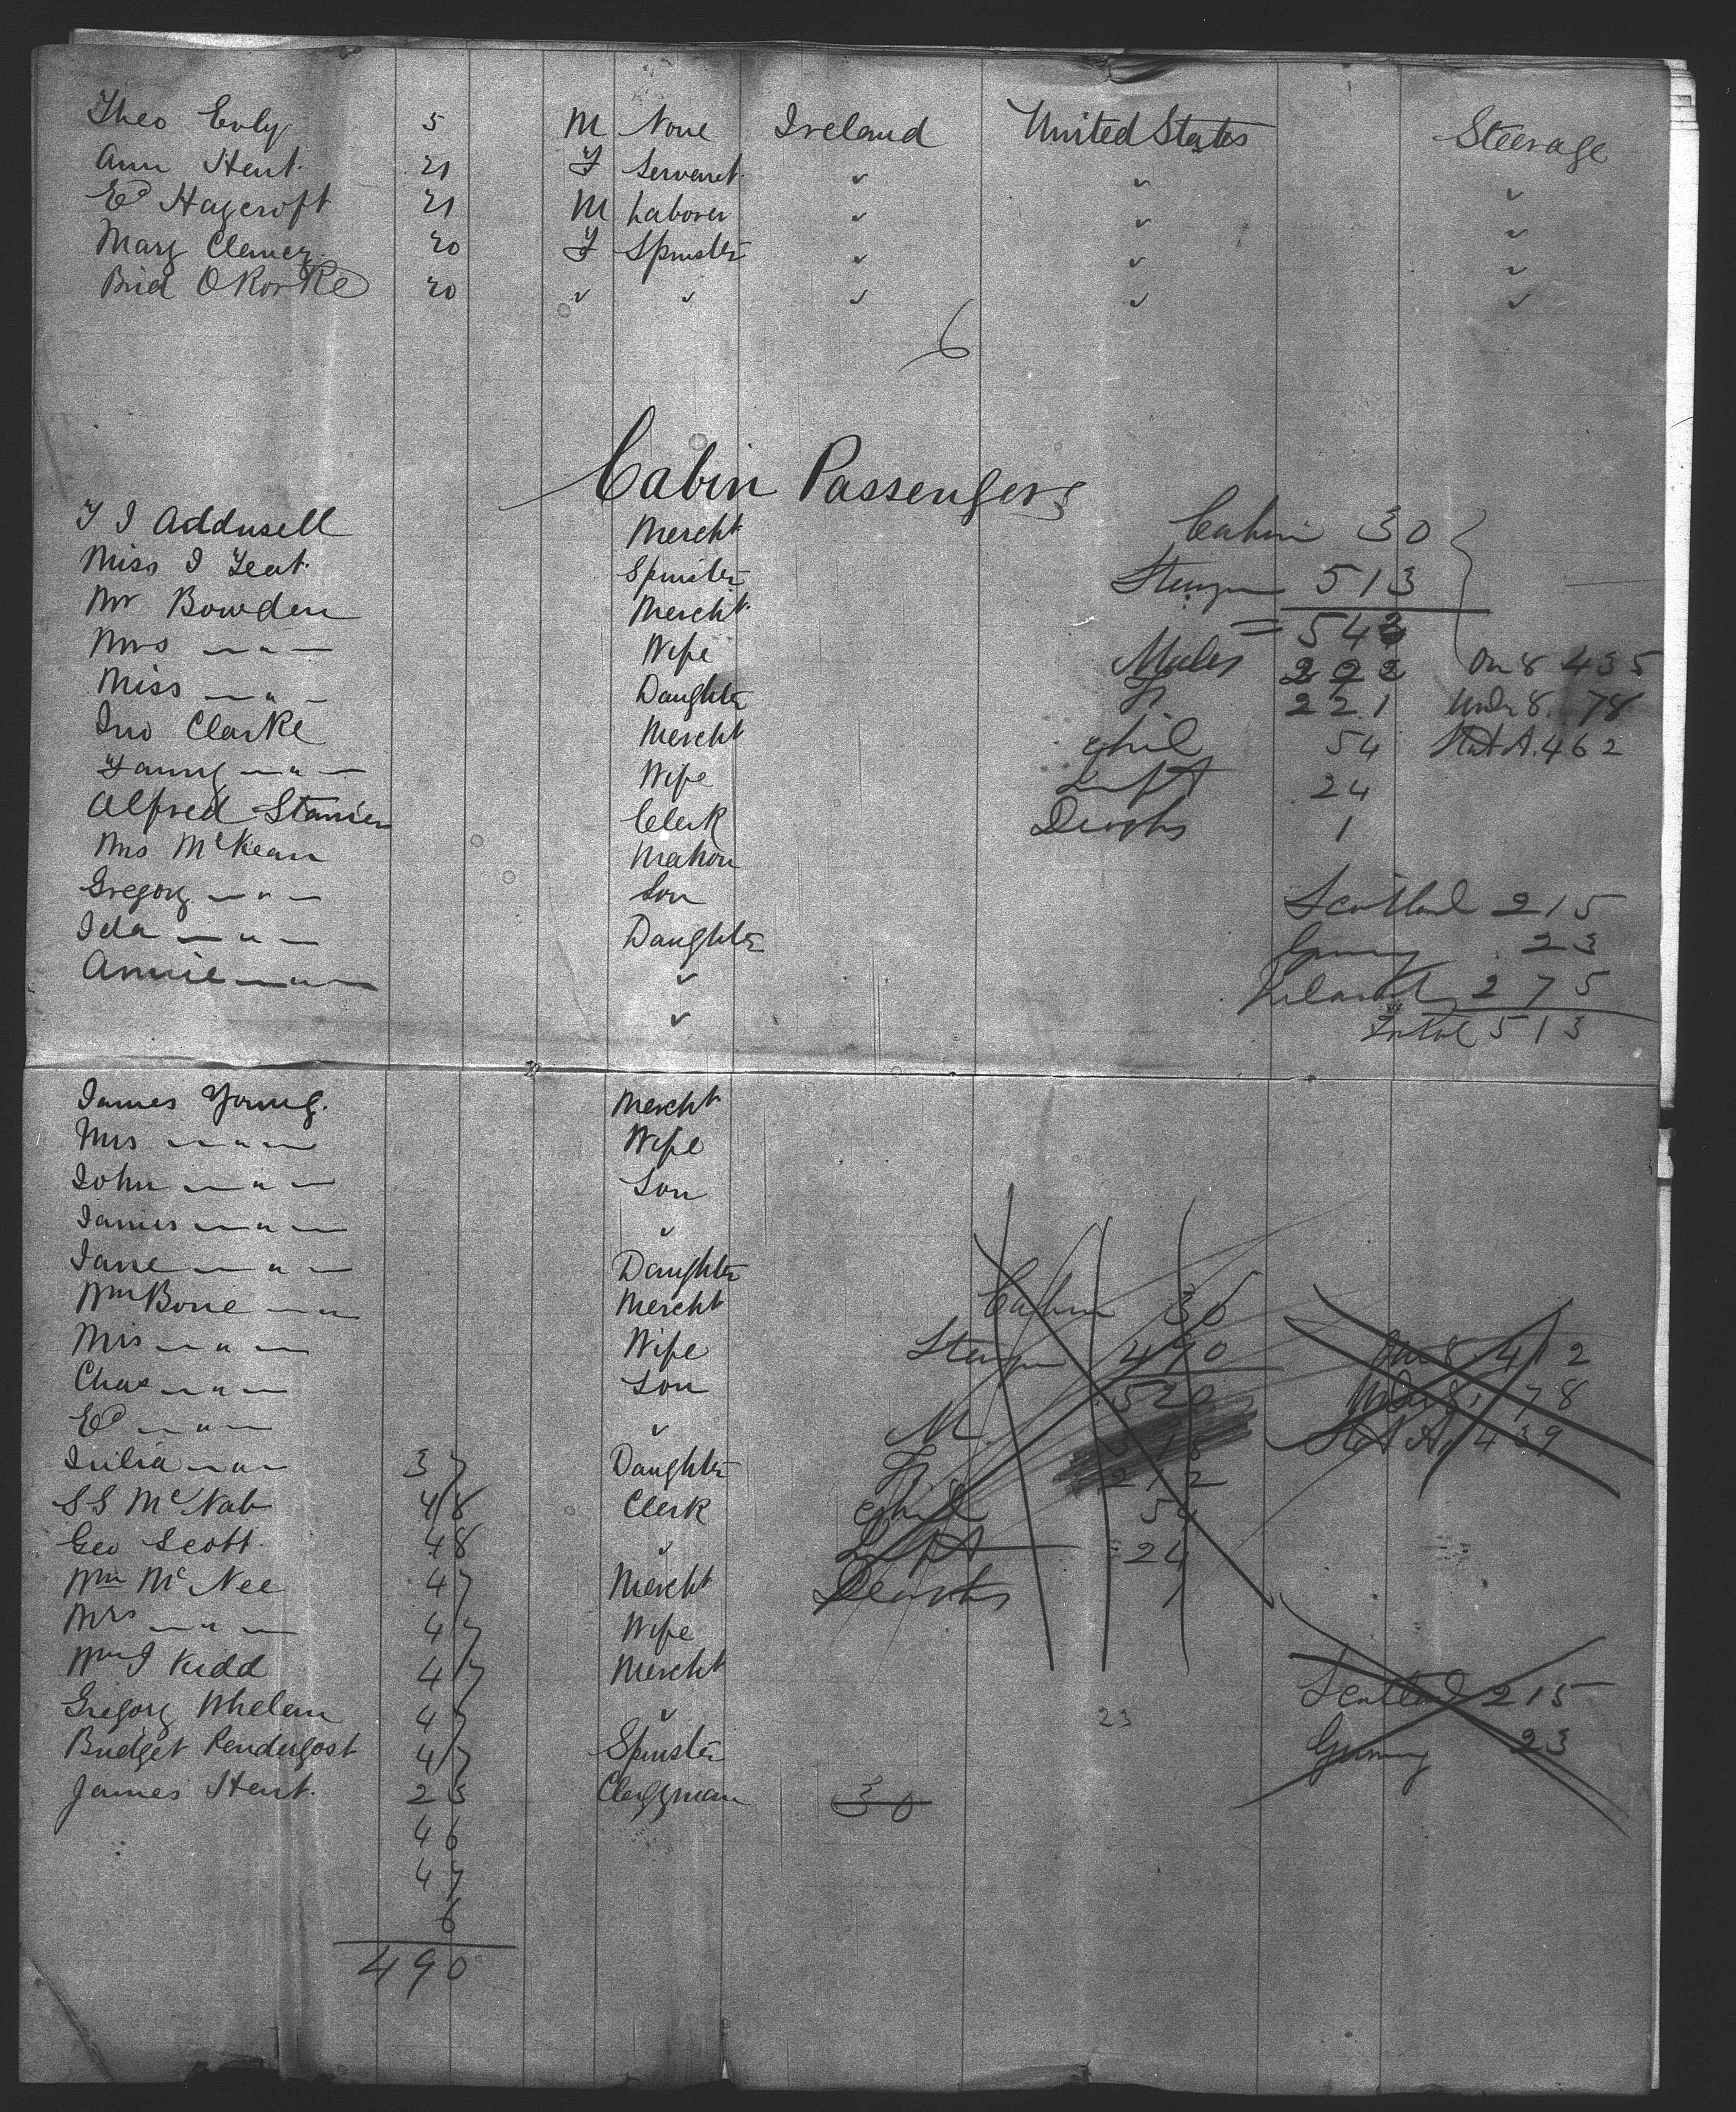 Theo Evly 5 M None Ireland United States Steerage
Ann Hent. 21 F Servant. " " "
Ed Haycroft 21 M Laborer " " "
Mary Clancy 20 F Spinster " " "
Brid O Rorke 20 " " " " "
6
Cabin Passengers
Mercht Cabin 30
Miss J Spinster Steerge 513
Mr Bowden Mercht. = 543
Mrs — " — Wife Males 292 Ov 8 435
Miss — " — Daughter F. 221 Under 8. 78
Jno Clarke Mercht Chil 54 Stat A. 462
Fanny — " — Wife Inft 24
Alfred Stanier Clerk Deaths 1
Mrs McKean Matron
Gregory — " — Son Scotland 215
Ida — " — Daughter Germy 23
Annie — " — " Ireland 275
" Total 513
James Young. Mercht
Mrs — " — Wife
John — " — Son
James — " — "
Jane — " — Daughter
Wm Bone — " Mercht Cabin 30
Mrs — " — Wife Steerge 490 Ov 8. 412
Chas — " — Son 520 Under 8. 78
Ed — " — " M. Stat A. 439
Julia — " — 37 Daughter F. 212
S S McNab 48 Clerk Chil 54
Geo Scott. 48 " Inft 24
Wm McNee 47 Mercht Deaths 1
Mrs — " — 47 Wife
Wm J Kidd 47 Mercht Scotland 215
Gregory Whelan 47 " 23
Bridget Pendergast 47 Spinster Germy 23
James Hent. 23 Clergyman 30
46
47
6
490